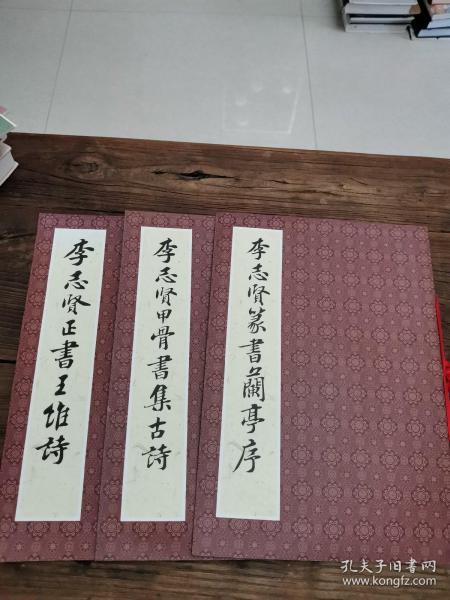 李志贤正書王維詩
李志贤甲骨書集古詩
李志贤篆書蘭亭序
孔夫子旧书网
www.kongfz.com